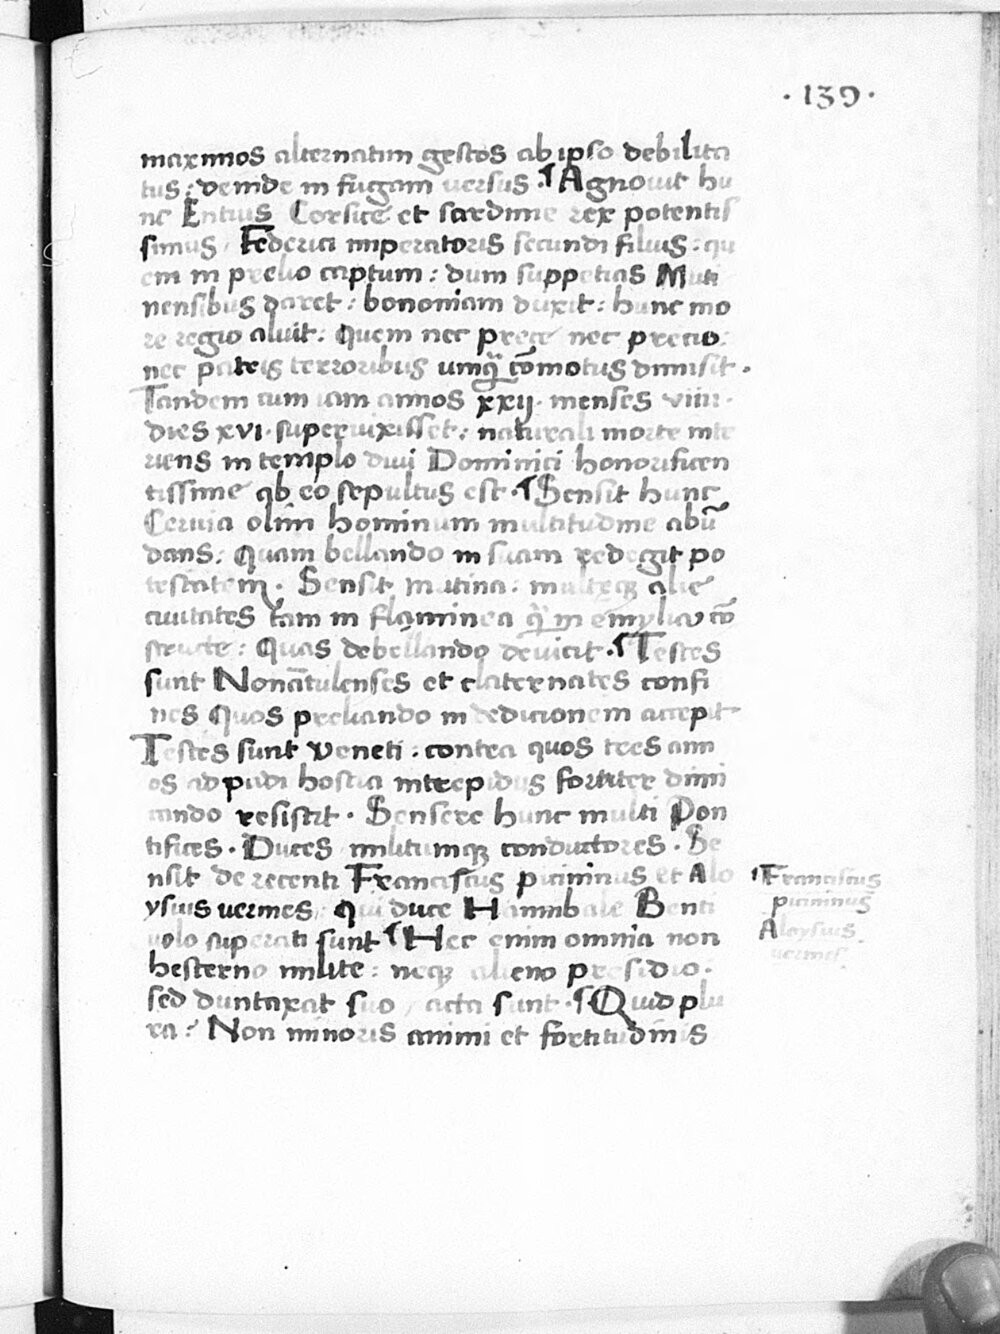 · 139 ·
maximos alternatim gestos ab ipso debilita
tus: deinde in fugam versus · ¶ Agnouit hu
nc Entius Corsice et sardinie rex potentis
simus / Federici imperatoris secundi filius: qu
em in prelio captum: dum suppetias Muti
nensibus daret: bononiam duxit: hunc mo
re regio aluit: Quem nec prece nec precio:
nec patris terroribus umq̄ cōmotus dimisit ·
Tandem cum iam annos xxij · menses viiii ·
dies xvi · superuixisset: naturali morte mo
riens in templo diui Dominici honorificen
tissime ab eo sepultus est · ¶ Sensit hunc
Ceruia olim hominum multitudine abū
dans: Quam bellando in suam redegit po
testatem · Sensit mutina: multeqꝫ alie
ciuitates tam in flaminea q̄ in emylia cō
structe: Quas debellando deuicit · ¶ Testes
sunt Nonātulenses et claternates confi
nes Quos preliando in dedicionem accepit
Testes sunt veneti: contra quos tres ann
os ad padi hostia intrepidus fortiter dimi
cando resistit · Sensere hunc multi Pon
tifices · Duces militumqꝫ conductores · Se
nsit de recenti Franciscus picininus et Alo
ysius vermes: Qui duce Hannibale Benti
uolo superati sunt ¶ Hec enim omnia non
hesterno milite: neqꝫ alieno presidio:
sed duntaxat suo / acta sunt · ¶ Quid plu
ra? Non minoris animi et fortitudinis
¶ Franciscus
picininus
Aloysius
vermes